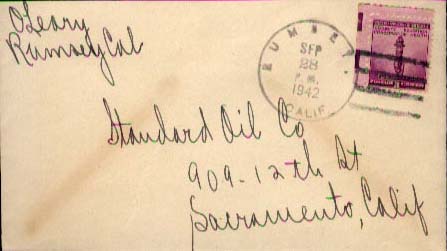 OLeary
Rumsey Cal
RUMSEY
SEP
28
P.M.
1942
CALIF
Standard Oil Co
909-12th St
Sacramento, Calif